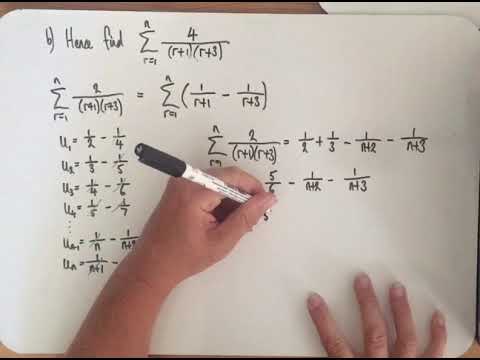 b) Hence find \sum_{r=1}^{n} \frac{4}{(r+1)(r+3)}
\sum_{r=1}^{n} \frac{2}{(r+1)(r+3)} = \sum_{r=1}^{n} \left( \frac{1}{r+1} - \frac{1}{r+3} \right)
u_1 = \frac{1}{2} - \frac{1}{4}
u_2 = \frac{1}{3} - \frac{1}{5}
u_3 = \frac{1}{4} - \frac{1}{6}
u_4 = \frac{1}{5} - \frac{1}{7}
⋮
u_{n-1} = \frac{1}{n} - \frac{1}{n+2}
u_n = \frac{1}{n+1} -
\sum_{r=1}^{n} \frac{2}{(r+1)(r+3)} = \frac{1}{2} + \frac{1}{3} - \frac{1}{n+2} - \frac{1}{n+3}
\frac{5}{6} - \frac{1}{n+2} - \frac{1}{n+3}
5